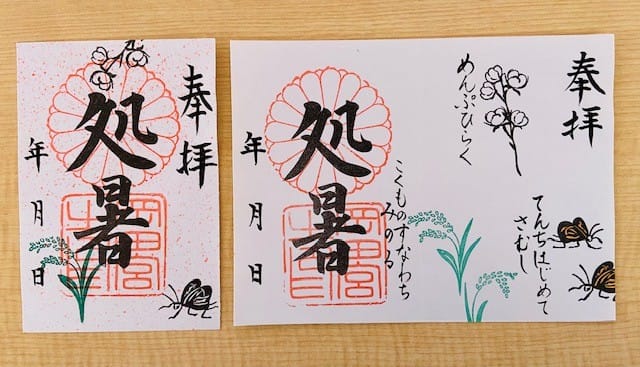 奉拝
処暑
年月日
奉拝
めんぷひらく
てんちはじめて
さむし
こくものすなわち
みのる
処暑
年月日